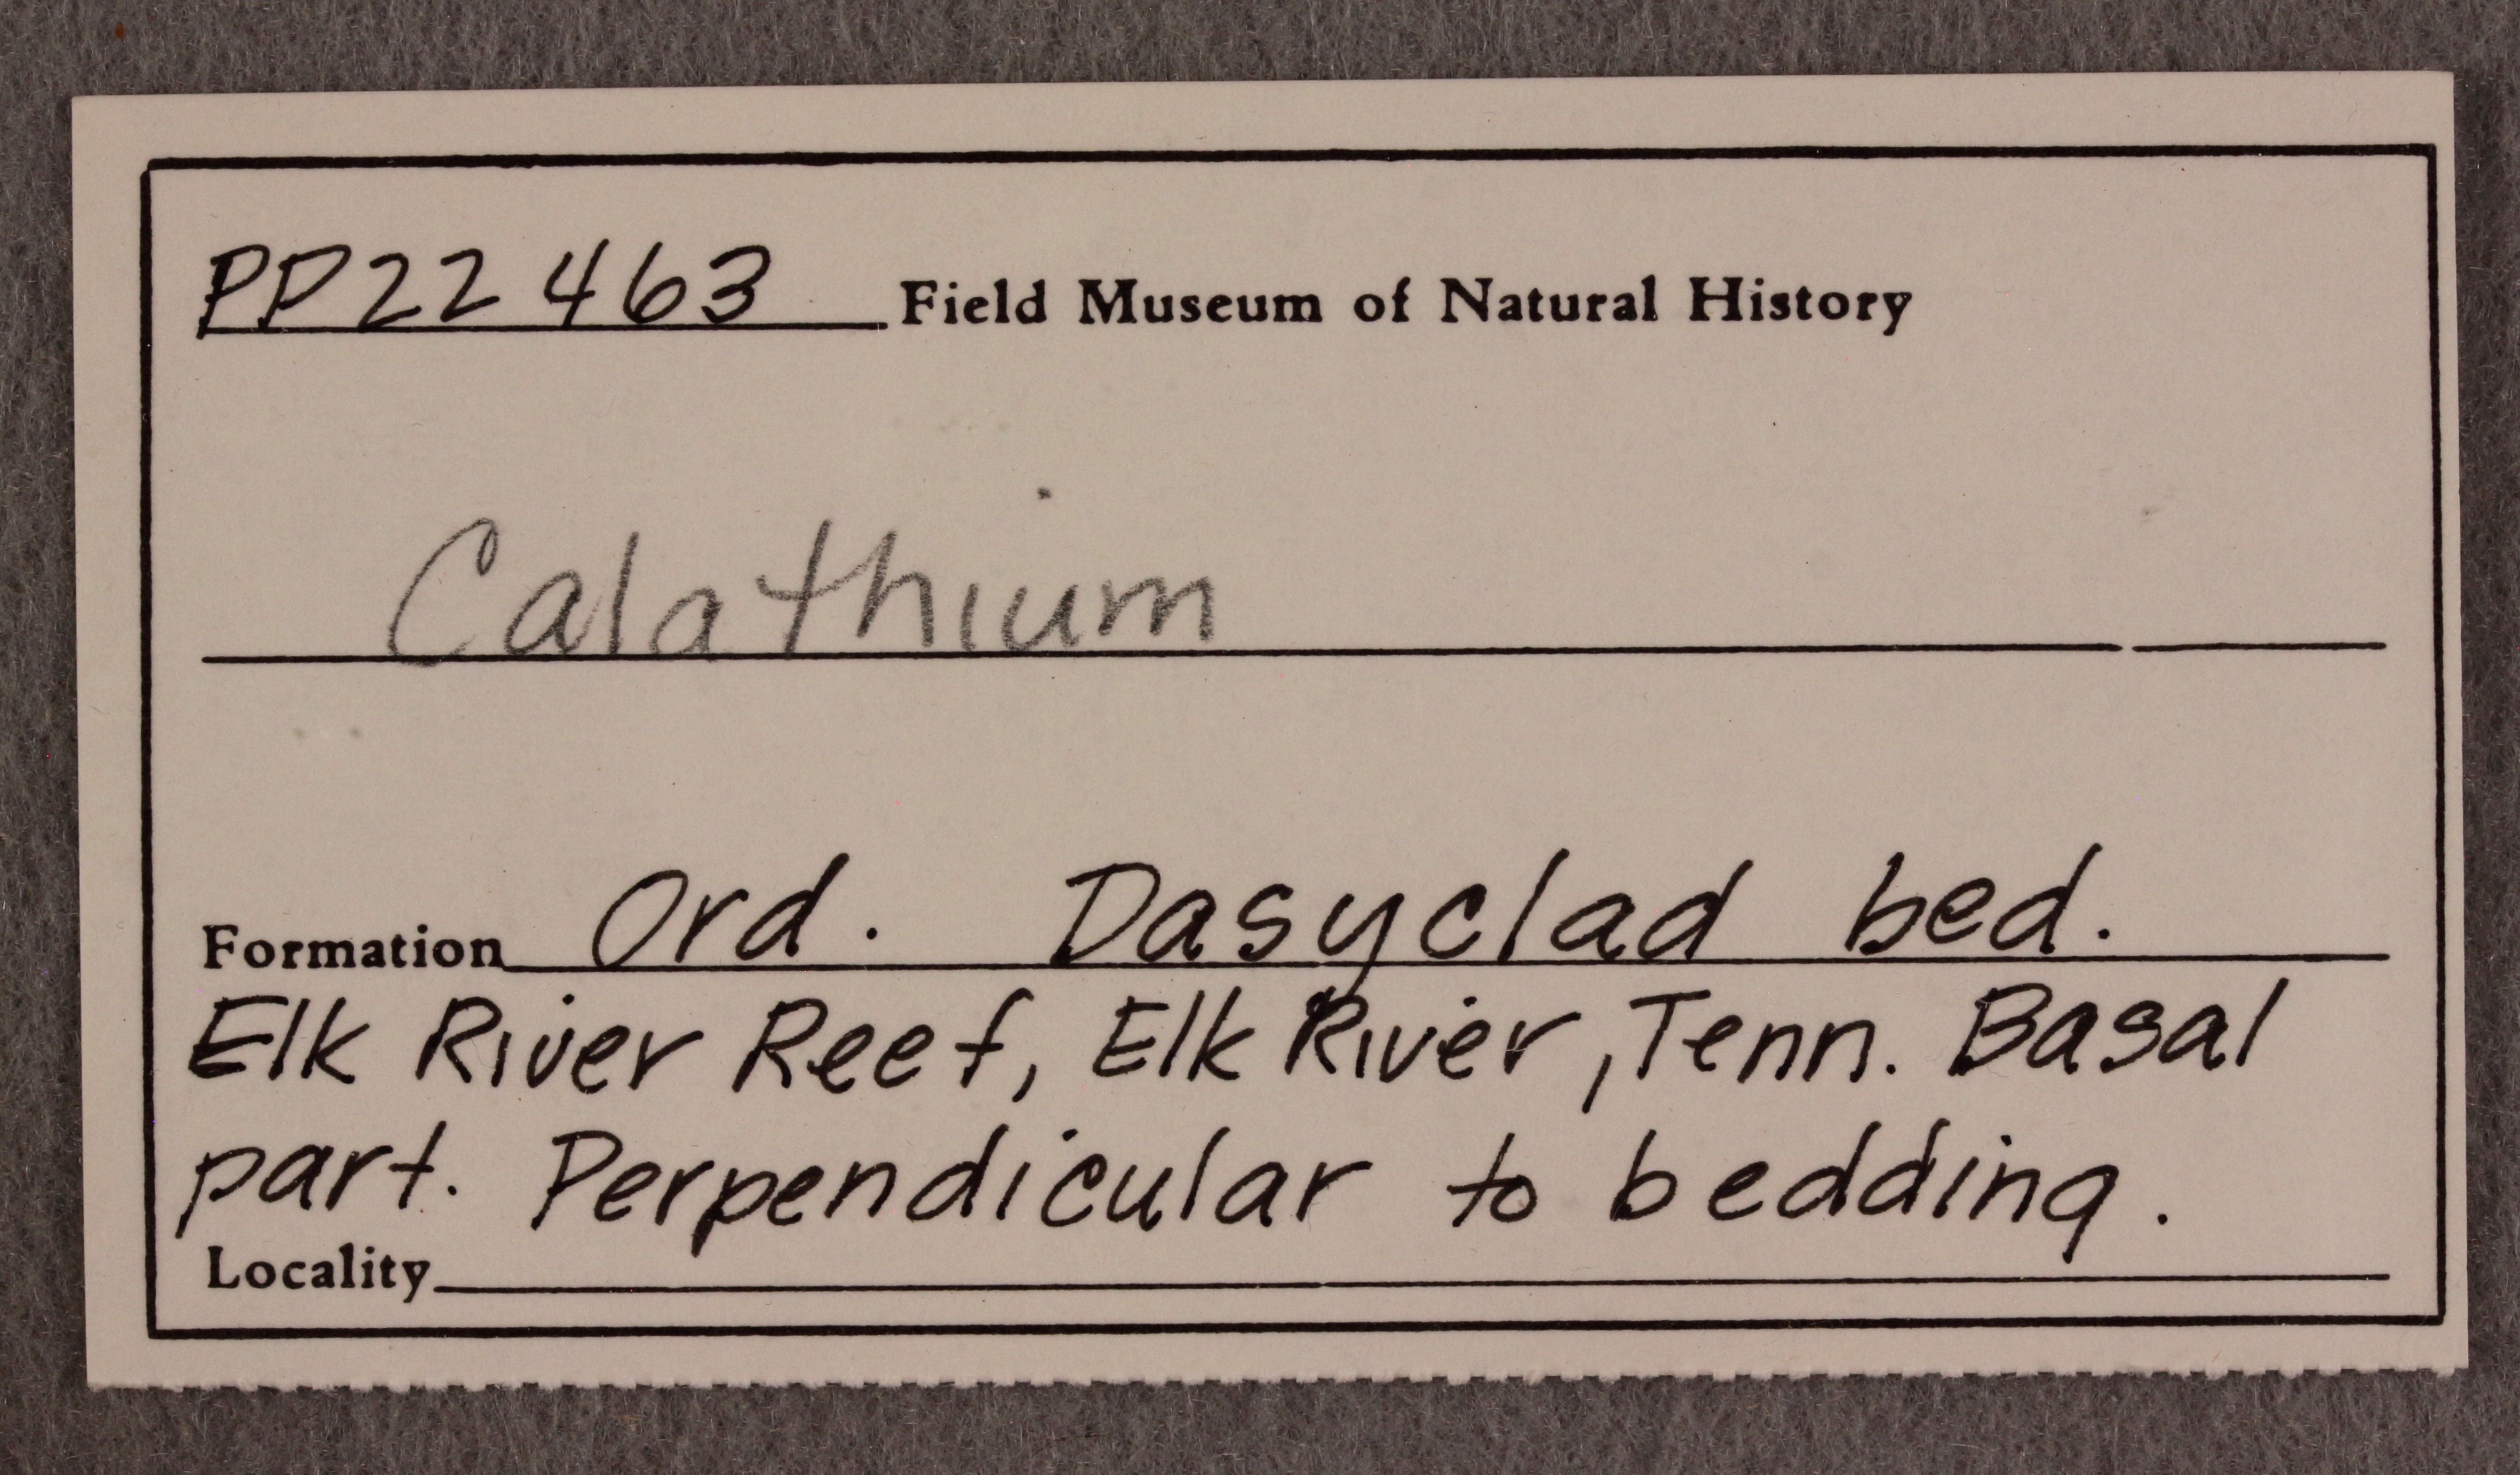 PP22463 Field Museum of Natural History
Calathium
Formation Ord. Dasyclad bed.
Elk River Reef, Elk River, Tenn. Basal
part. Perpendicular to bedding.
Locality